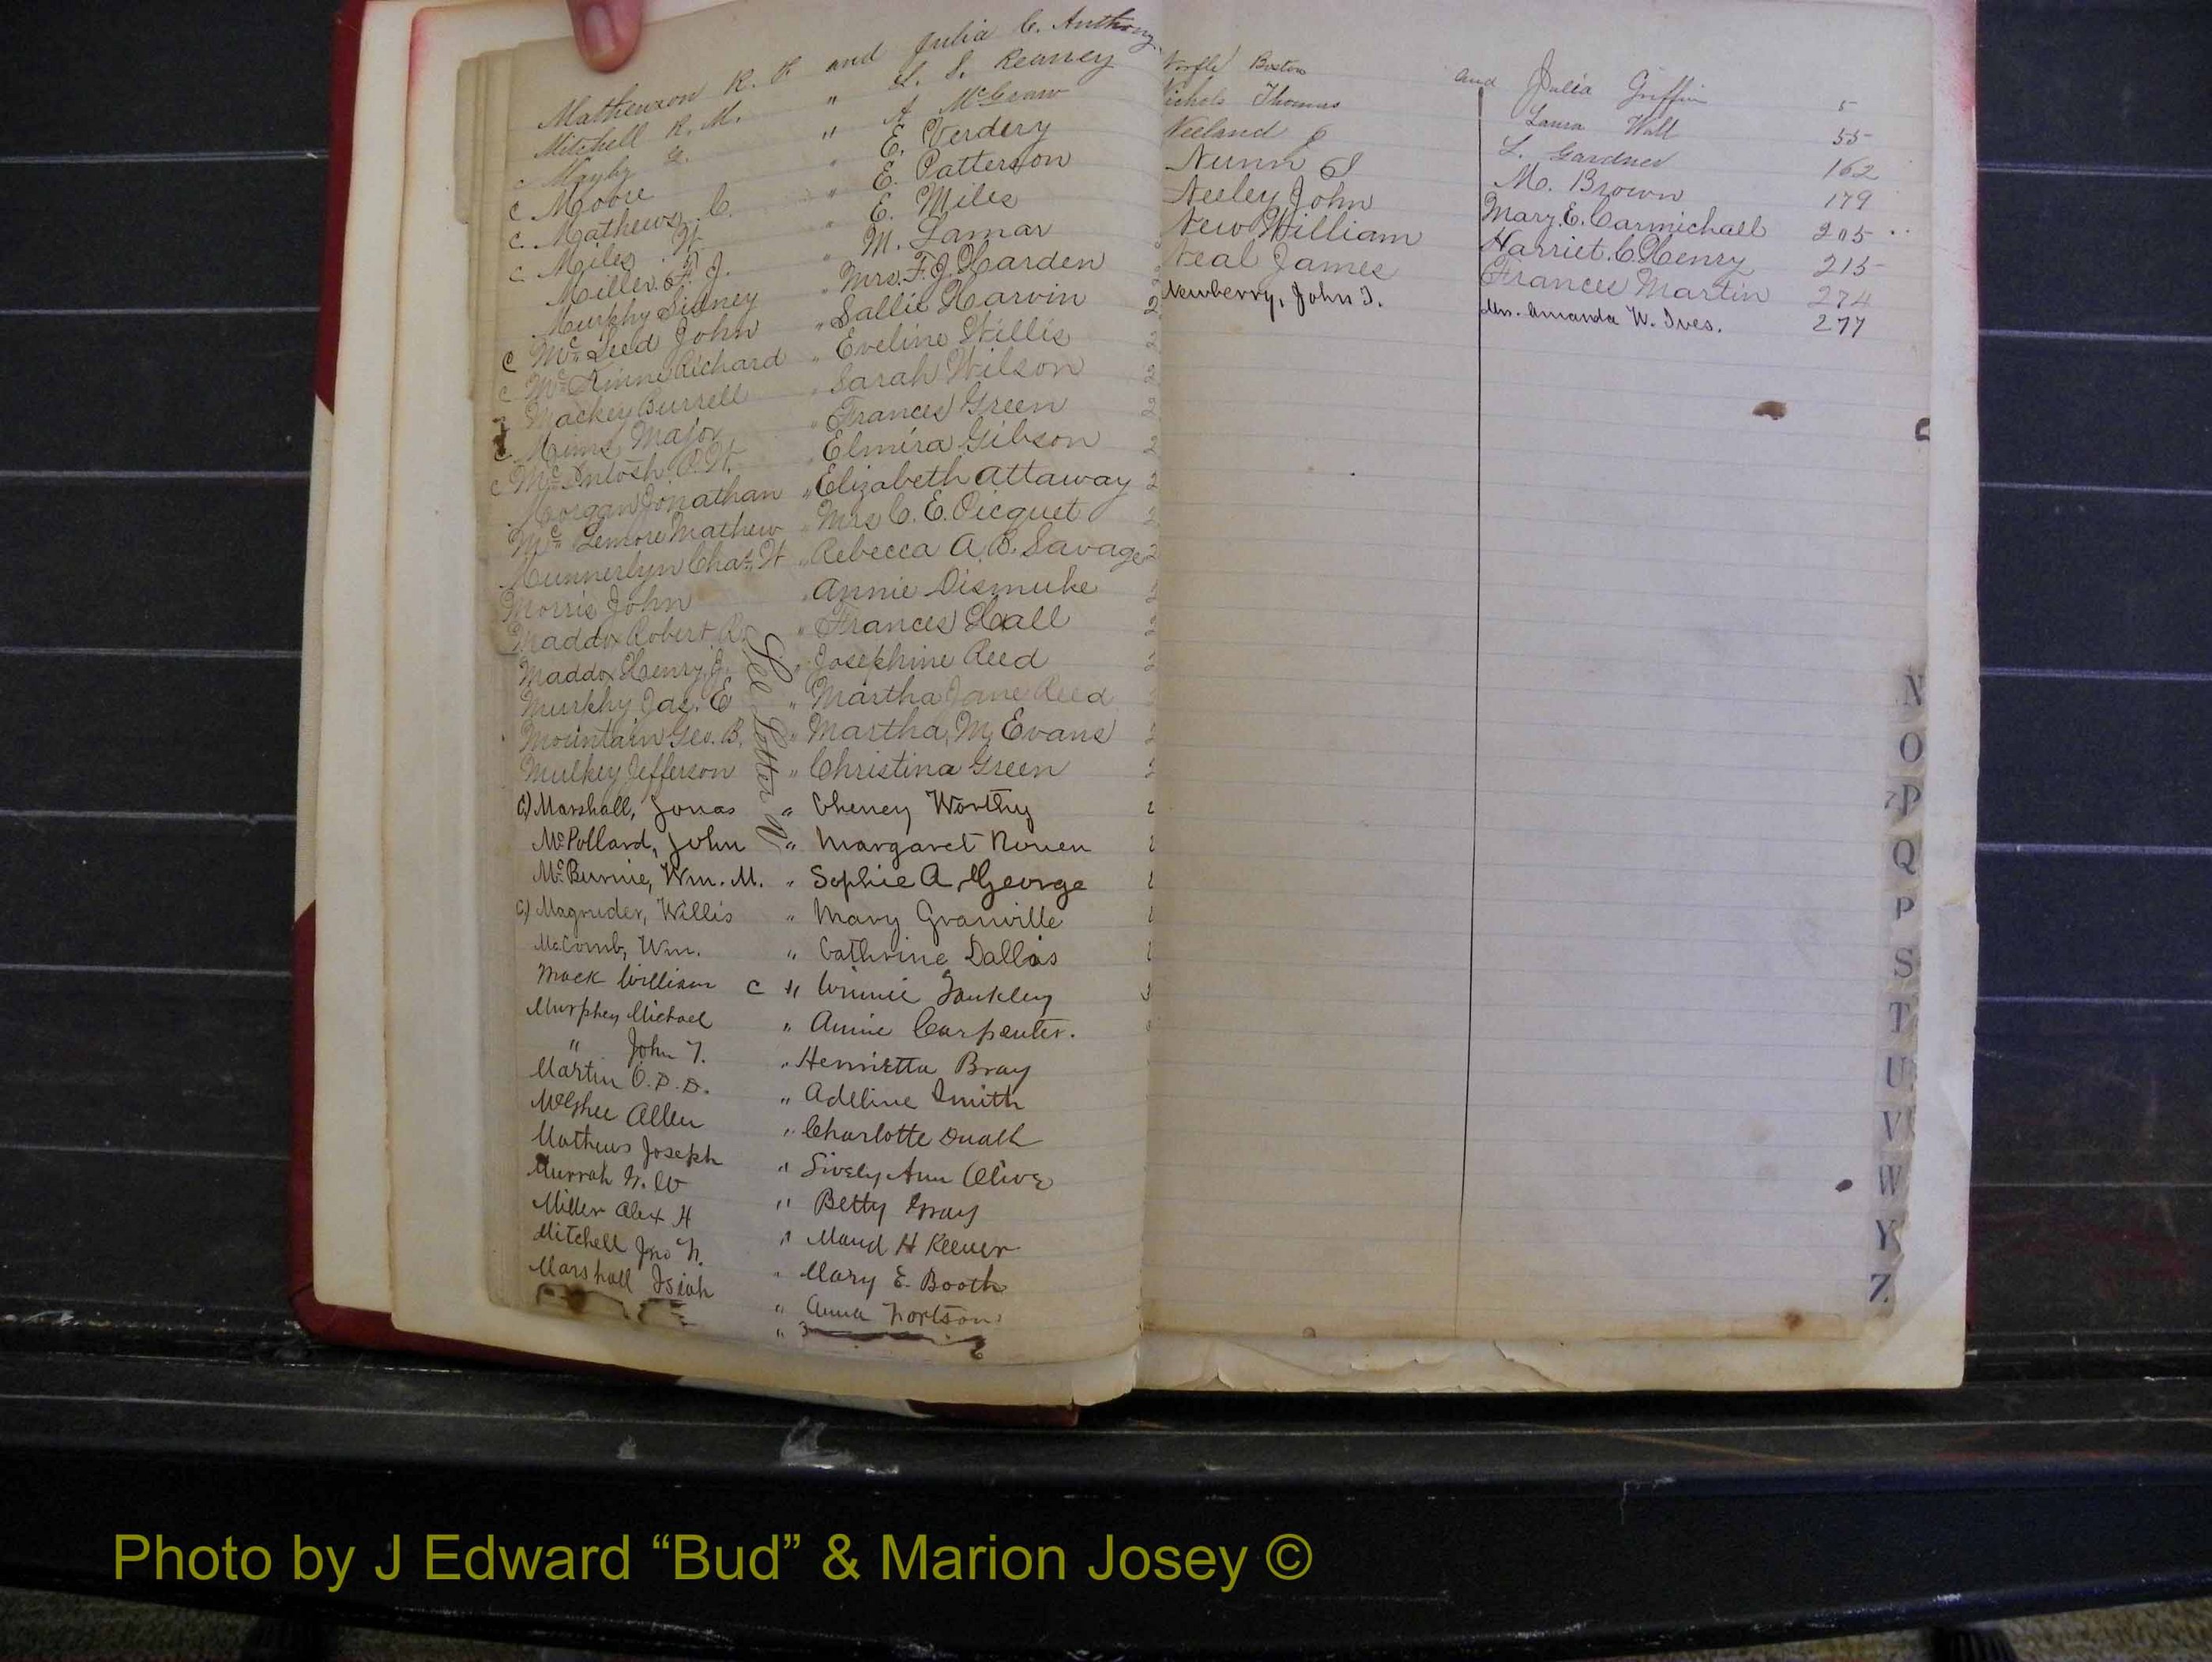 Mathewson R. P. and Julia C. Anthony
Mitchell R. M. " L. S. Reaney
c Mayby G. " A McGraw
c Moore " E. Verdery
c Mathews C. " E. Patterson
c Miles W. " E. Miles
Miller F. J. " M. Lamar
Murphy Sidney " Mrs. F. J. Harden
c Mc Leed John " Sallie Harvin
c Mc Kinne Richard " Eveline Willis
Mackey Burrell " Sarah Wilson
c Mims Major " Frances Green
c Mc Intosh " Elmira Gibson
Morgan Jonathan " Elizabeth Attaway
Mc Lemore Mathew " Mrs C. E. Picquet
Munnerlyn Chas. W " Rebecca A. B. Savage
Morris John " Annie Dismuke
Maddox Robert R. " Frances Hall
Maddox Henry J. " Josephine Reed
Murphy Jas. E " Martha Jane Reed
Mountain Geo. B. " Martha M. Evans
Mulkey Jefferson " Christina Green
c) Marshall, Jonas " Cheney Worthy
McPollard, John " Margaret Rouen
McBurnie, Wm. M. " Sophie A. George
c) Magruder, Willis " Mary Granville
McComb, Wm. " Cathrine Dallas
Mack William c " Winnie
Murphey Michael " Annie Carpenter.
" John T. " Henrietta Bray
Martin O. P. D. " Adeline Smith
McGhee Allen " Charlotte
Mathews Joseph " Lively Ann Olive
Murrah W. W " Betty Gray
Miller Alex H " Maud H Keener
Mitchell Jno N. " Mary E. Booth
Marshall Isiah " Anna Fortson
See Letter N
Norfle Boston and Julia Griffin 5
Nichols Thomas Laura Wall 55
Neeland J L. Gardner 162
Nunn S M. Brown 179
Neeley John Mary E. Carmichall 205
New William Harriet C. Henry 215
Neal James Frances Martin 274
Newberry, John J. Mrs. Amanda W. Ives. 277
N
O
P
Q
P
S
T
U
V
W
Y
Z
Photo by J Edward “Bud” & Marion Josey ©